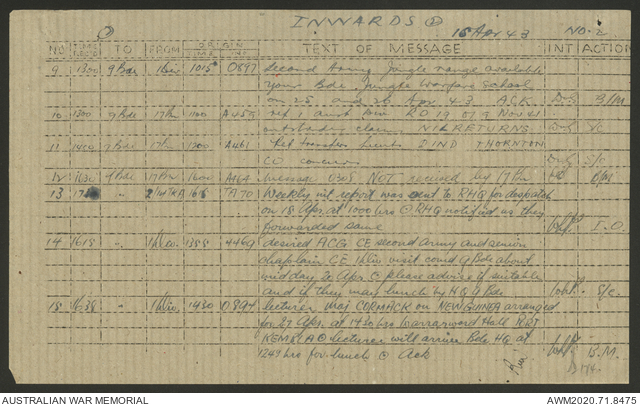 INWARDS ②
16 Apr 43 NO. 2
NO TIME REC'D TO FROM ORIGIN TIME TEXT OF MESSAGE INT ACTION
9 1300 9 Bde 1 Div 1015 0897 Second Army Jungle range available
your Bde Jungle Warfare School
on 25 and 26 Apr 43 ACK B/M
10 1300 9 Bde 17 Bn 1100 A459 ref 1 Aust RO 19 of 9 Nov 41
outstanding claims NIL RETURNS
11 1400 9 Bde 17 Bn 1200 A461 Ref transfer Lieut 2 IND THORNTON
CO concurs S/C
12 1630 9 Bde 17 Bn 1600 A464 message 0305 NOT received by 17 Bn B/M
13 TA70 Weekly nil report was sent to RHQ for despatch
on 18 Apr. at 1000 hrs @ RHQ notified us they
forwarded same I.O.
14 1615 " 1 Div. 1355 4469 desired ACG CE Second Army and senior
chaplain CE 1 Div visit could 9 Bde about
midday 20 Apr @ please advise if suitable
and if they may lunch by HQ 9 Bde S/C.
15 1638 " 1 Div. 1430 0894 lecturer Maj CORMACK on NEW GUINEA arranged
for 27 Apr. at 1430 hrs Warrawong Hall PORT
KEMBLA @ lecturer will arrive Bde HQ at
1245 hrs for lunch @ Ack B.M.
AUSTRALIAN WAR MEMORIAL AWM2020.71.8475